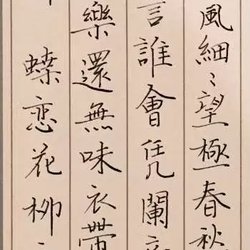 風細〻望極春
言誰會凭闌
樂還無味衣帶
蝶恋花柳